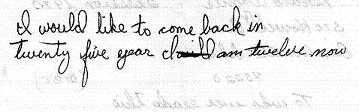 I would like to come back in
twenty five year I am twelve now